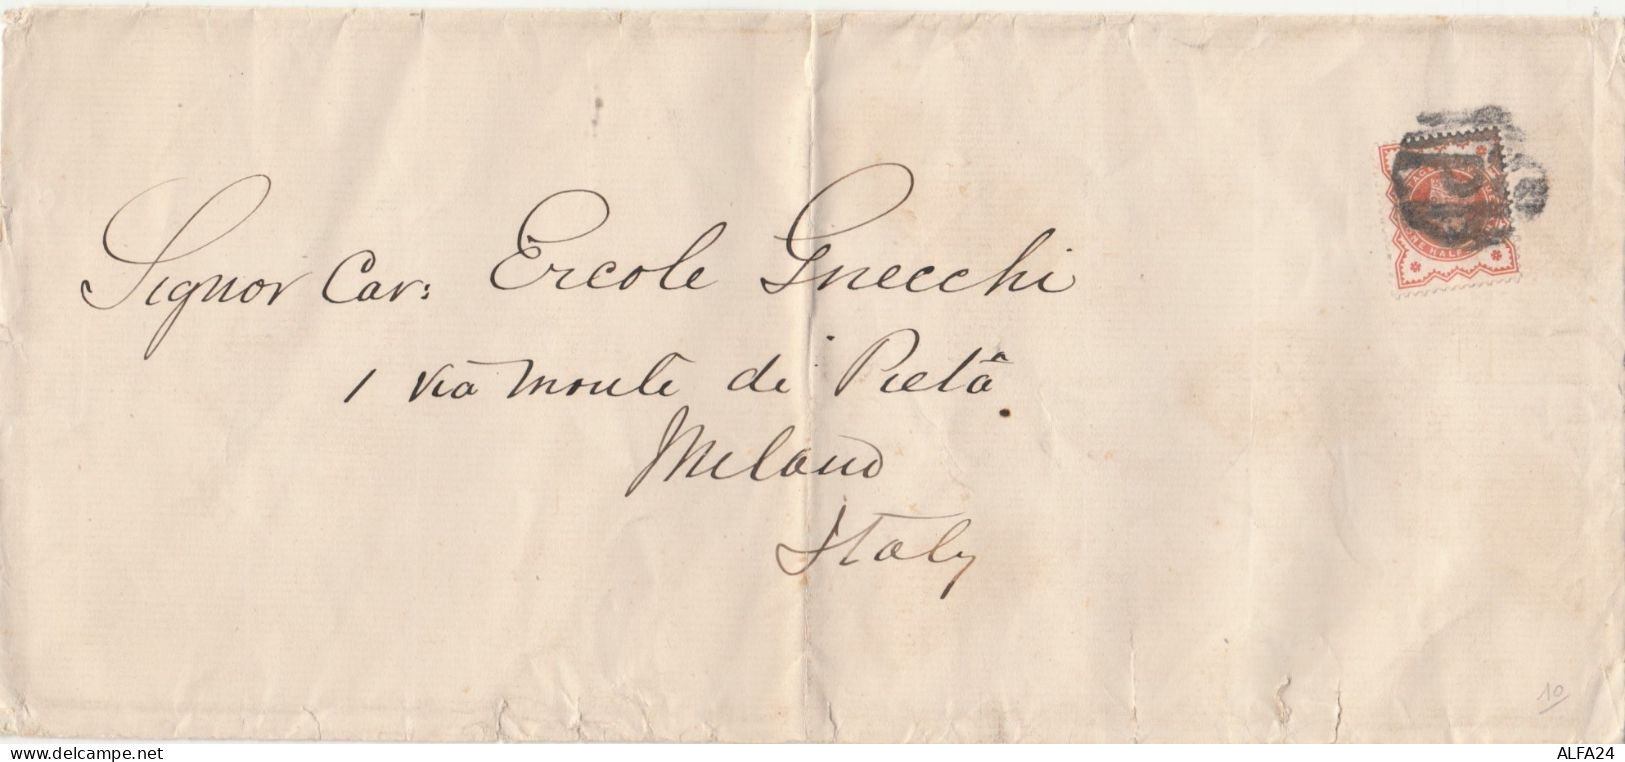 Signor Cav: Ercole Gnecchi
1 Via Monte di Pietâ
Milano
Italy
ONE HALF
10
www.delcampe.net
ALFA24